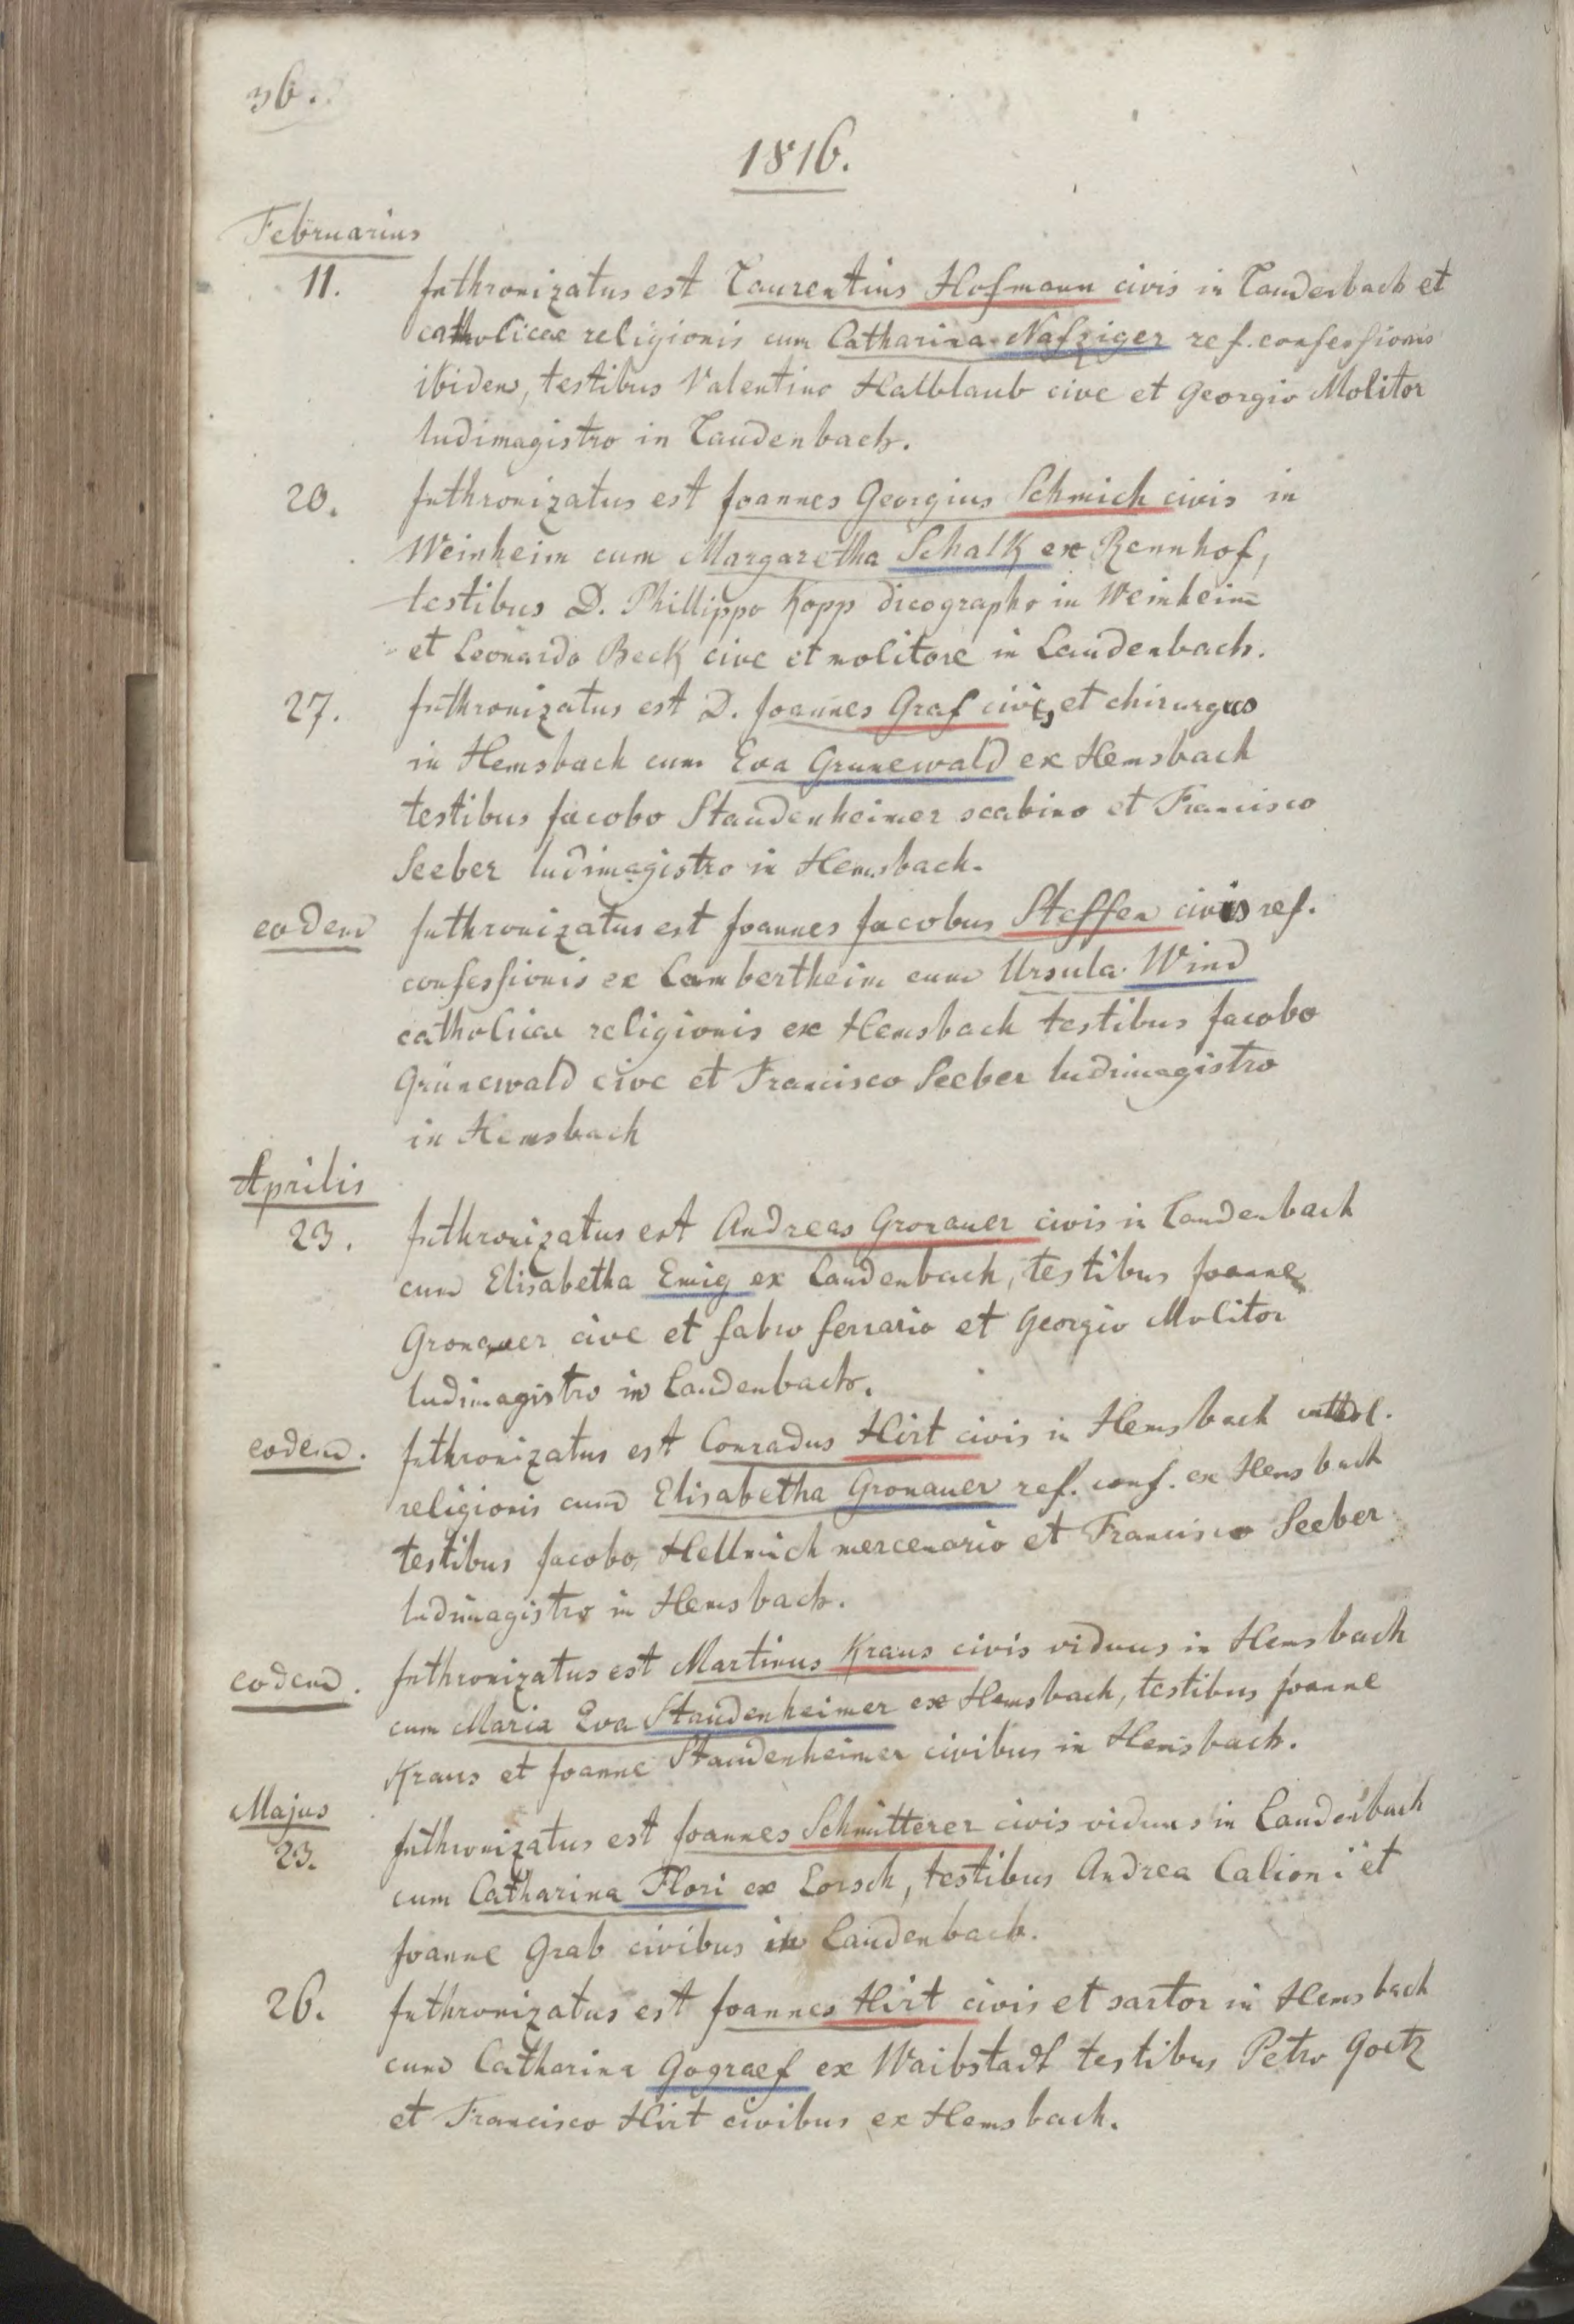 36.
1816.
Februarius
11. Inthronizatus est Laurentius Hofmann civis in Laudenbach et
catholicae religionis cum Catharina Nafziger ref. confessionis
ibidem, testibus Valentino Halblaub cive et Georgio Molitor
ludimagistro in Laudenbach.
20. Inthronizatus est Joannes Georgius Schmich civis in
Weinheim cum Margaretha Schalk ex Rennhof,
testibus D. Phillippo Kopp dicographo in Weinheim
et Leonardo Beck cive et molitore in Laudenbach.
27. Inthronizatus est D. Joannes Graf civis et chirurgus
in Hemsbach cum Eva Grunewald ex Hemsbach
testibus Jacobo Staudenheimer scabino et Francisco
Seeber ludimagistro in Hemsbach.
eodem Inthronizatus est Joannes Jacobus Steffen civis ref.
confessionis ex Lambertheim cum Ursula Wind
catholicae religionis ex Hemsbach testibus Jacobo
Grünewald cive et Francisco Seeber ludimagistro
in Hemsbach
Aprilis
23. Inthronizatus est Andreas Gronauer civis in Laudenbach
cum Elisabetha Emig ex Laudenbach, testibus Joanne
Gronauer cive et fabro ferrario et Georgio Molitor
ludimagistro in Laudenbach.
eodem. Inthronizatus est Conradus Hirt civis in Hemsbach cathol.
religionis cum Elisabetha Gronauer ref. conf. ex Hemsbach
testibus Jacobo Hellmich mercenario et Francisco Seeber
ludimagistro in Hemsbach.
eodem. Inthronizatus est Martinus Kraus civis viduus in Hemsbach
cum Maria Eva Staudenheimer ex Hemsbach, testibus Joanne
Kraus et Joanne Staudenheimer civibus in Hemsbach.
Majus
23. Inthronizatus est Joannes Schmitterer civis viduus in Laudenbach
cum Catharina Flori ex Lorsch, testibus Andrea Calioni et
Joanne Grab civibus in Laudenbach.
26. Inthronizatus est Joannes Hirt civis et sartor in Hemsbach
cum Catharina Gograef ex Waibstadt testibus Petro Goetz
et Francisco Hirt civibus ex Hemsbach.